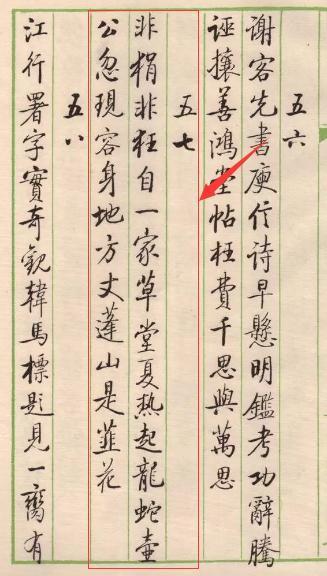 五六
謝客先書庾信诗早懸明鑑考功辭騰
誣攘善鴻堂帖枉費千思與萬思
五七
非狷非狂自一家草堂夏热起龍蛇壺
公忽現容身地方丈蓬山是韮花
五八
江行署字實奇觀韓馬標題見一臠有